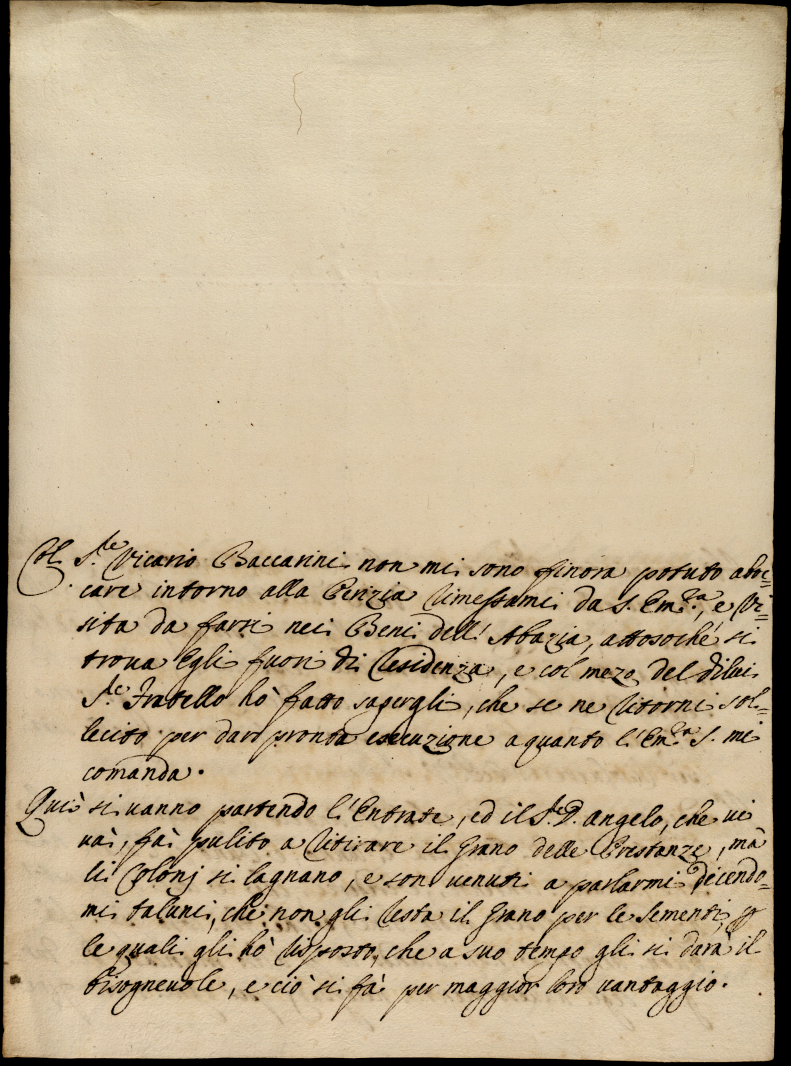 Col S.re Vicario Baccarini non mi sono finora potuto abo=
care intorno alla Perizia rimessami da S. Em.za, e Vi=
sita da farsi nei Beni dell' Abazia, attosoché si
trova Egli fuori di Residenza, e col mezo del dilui
S.re Fratello hò fatto sapergli, che se ne ritorni sol=
lecito per dar pronta esecuzione a quanto l'Em.za S. mi
comanda.
Quì si vanno partendo l'Entrate, ed il S.re D. Angelo, che vi
và, fà pulito a ritirare il Grano delle Prestanze, mà
li Colonj si lagnano, e son venuti a parlarmi dicendo=
mi taluni, che non gli resta il Grano per le Sementi, p
le quali gli hò risposto, che a suo tempo gli si darà il
bisognevole, e ciò si fà per maggior loro vantaggio.